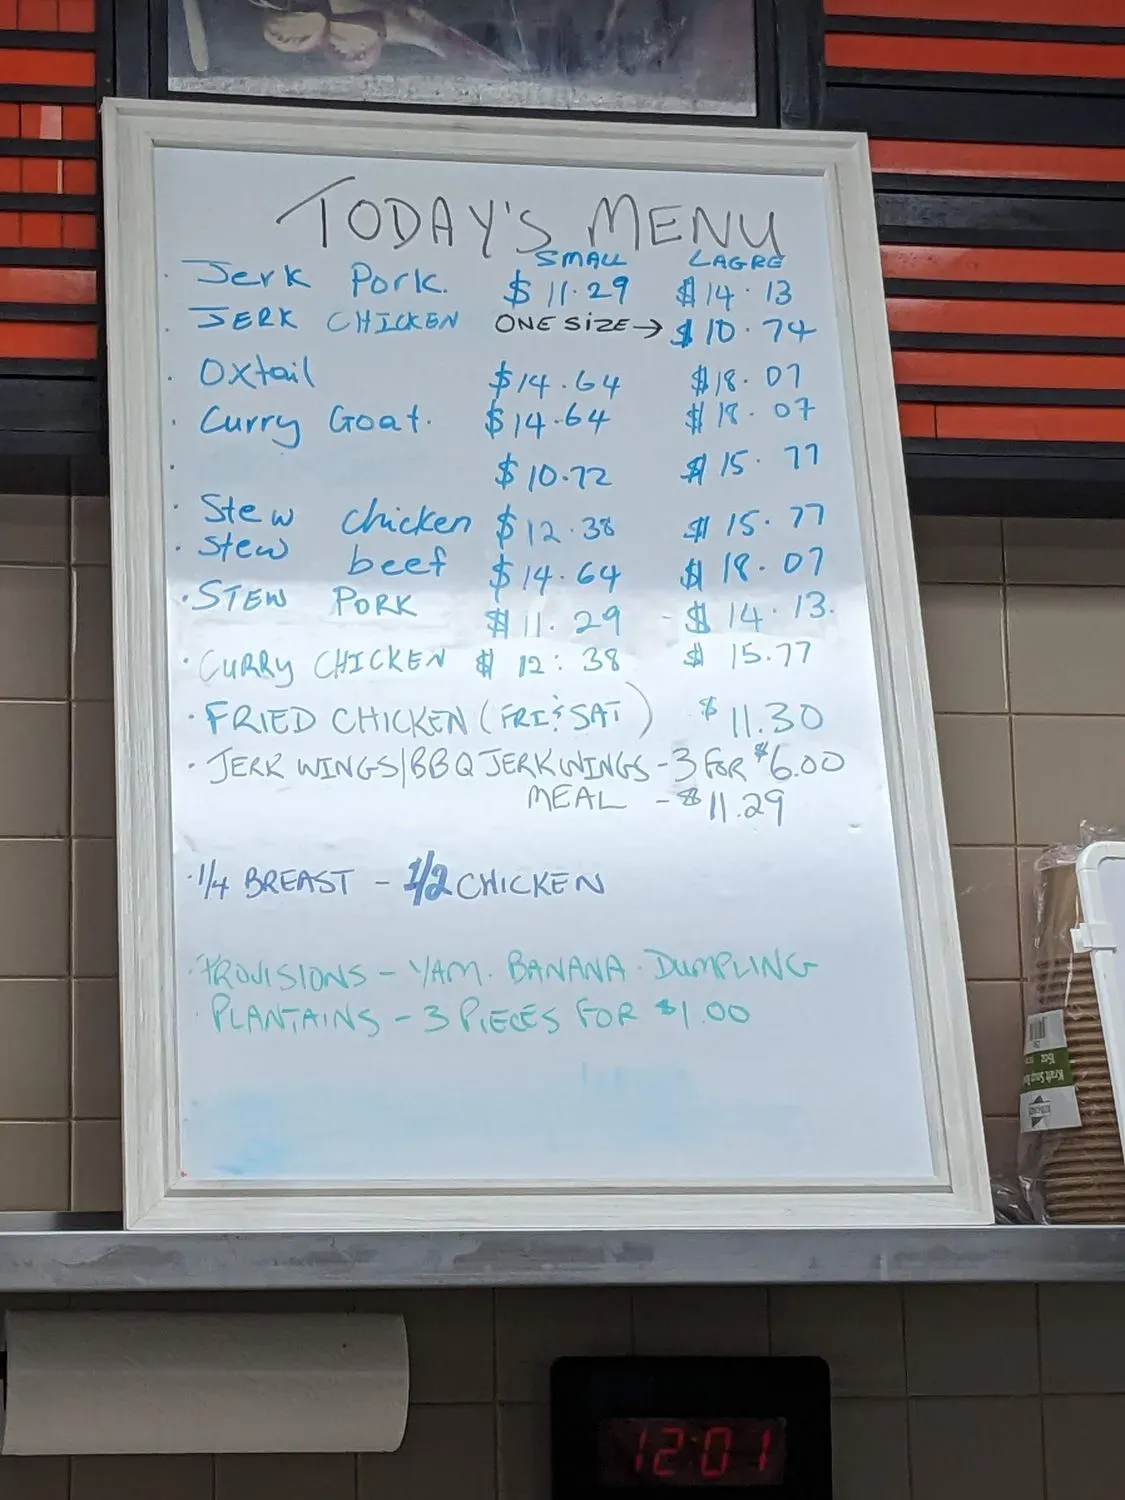 TODAY'S MENU
SMALL LAGRE
· Jerk Pork. $11.29 $14.13
· JERK CHICKEN ONE SIZE → $10.74
· Oxtail $14.64 $18.07
· Curry Goat. $14.64 $18.07
· $10.72 $15.77
· Stew chicken $12.38 $15.77
· Stew beef $14.64 $18.07
· STEW PORK $11.29 - $14.13.
· CURRY CHICKEN $12:38 $15.77
· FRIED CHICKEN (FRI & SAT) $11.30
· JERK WINGS/BBQ JERK WINGS - 3 FOR $6.00
MEAL - $11.29
· 1/4 BREAST - 1/2 CHICKEN
· PROVISIONS - YAM. BANANA. DUMPLING
· PLANTAINS - 3 PIECES FOR $1.00
12:01